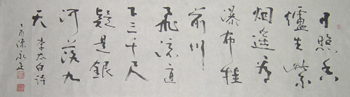 日照香
爐生紫
烟遥看
瀑布挂
前川
飛流直
下三千尺
疑是銀
河落九
天 李太白诗